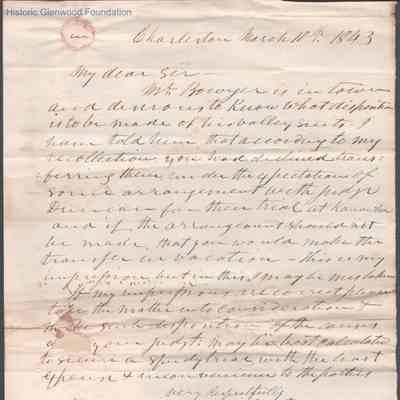 Historic Glenwood Foundation
Charleston March 10th 1843
My dear Sir
Mr Bowyer is in town
and desirous to know what disposition
is to be made of his valley suits. I
have told him that according to my
recollection you had declined trans-
ferring them under the expectation of
some arrangement with judge
Duncan for their trial at Kanawha
and if the arrangement should not
be made, that you would make the
transfer in vacation - this is my
impression but in this I may be mistaken
If my impressions are correct please
take the matter into consideration &
such disposition of the causes
your judgt. may be best calculated
to secure a speedy trial with the least
expense & inconvenience to the parties
very respectfully